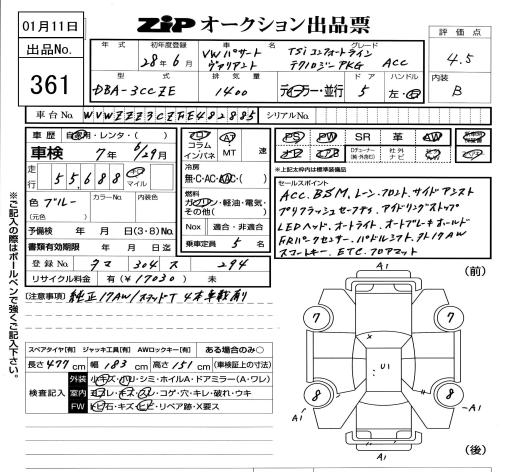 01月11日
ZIP オークション出品票
出品No.
361
年式
初年度登録
28年6月
車名
VWパサート
ヴァリアント
グレード
TSi コンフォートライン
テクノロジーPKG ACC
型式
DBA-3CCZE
排気量
1400
ドア
5
ハンドル
左・右
評価点
4.5
内装
B
車台No. WVWZZZ3CZHE482885
シリアルNo.
車歴 自家用・レンタ・( )
車検 7年 6/29月
走行 55,688 キロ マイル
色 ブルー
(元色 )
カラーNo.
内装色
予備検 年 月 日(3・8)No.
書類有効期限 年 月 日迄
登録No. タマ 304 ス 294
リサイクル料金 有(¥17030) 未
フロア
コラム
インパネ
AT
MT 速
冷房
無・C・AC・AAC・( )
燃料
ガソリン・軽油・電気・
その他( )
Nox 適合・非適合
乗車定員 5 名
PS PW SR 革 AW
エアB
社外
ナビ
*上記太枠内は標準装備品
セールスポイント
ACC. BSM. レーン.フロント.サイドアシスト
プリクラッシュセーフティ. アイドリングストップ
LEDヘッド. オートライト. オートブレーキホールド
F.Rパークセンサー. パドルシフト. 17AW
スマートキー. ETC. フロアマット
[注意事項] 純正17AW/スタッドT 4本車載有り
※ご記入の際はボールペンで強くご記入下さい。
スペアタイヤ[有] ジャッキ工具[有] AWロックキー[有] ある場合のみ○
長さ 477 cm 幅 183 cm 高さ 151 cm (車検証上の寸法)
検査記入
外装 小キズ・凹・シミ・ホイルA・ドアミラー(A・ワレ)
室内 ヨゴレ・キズ・スレ・コゲ・穴・キレ・破れ・ウキ
FW 飛石・キズ・ヒビ・リペア跡・X要ス
(前)
A1
7
7
U1
8
8
A1
A1
A1
(後)